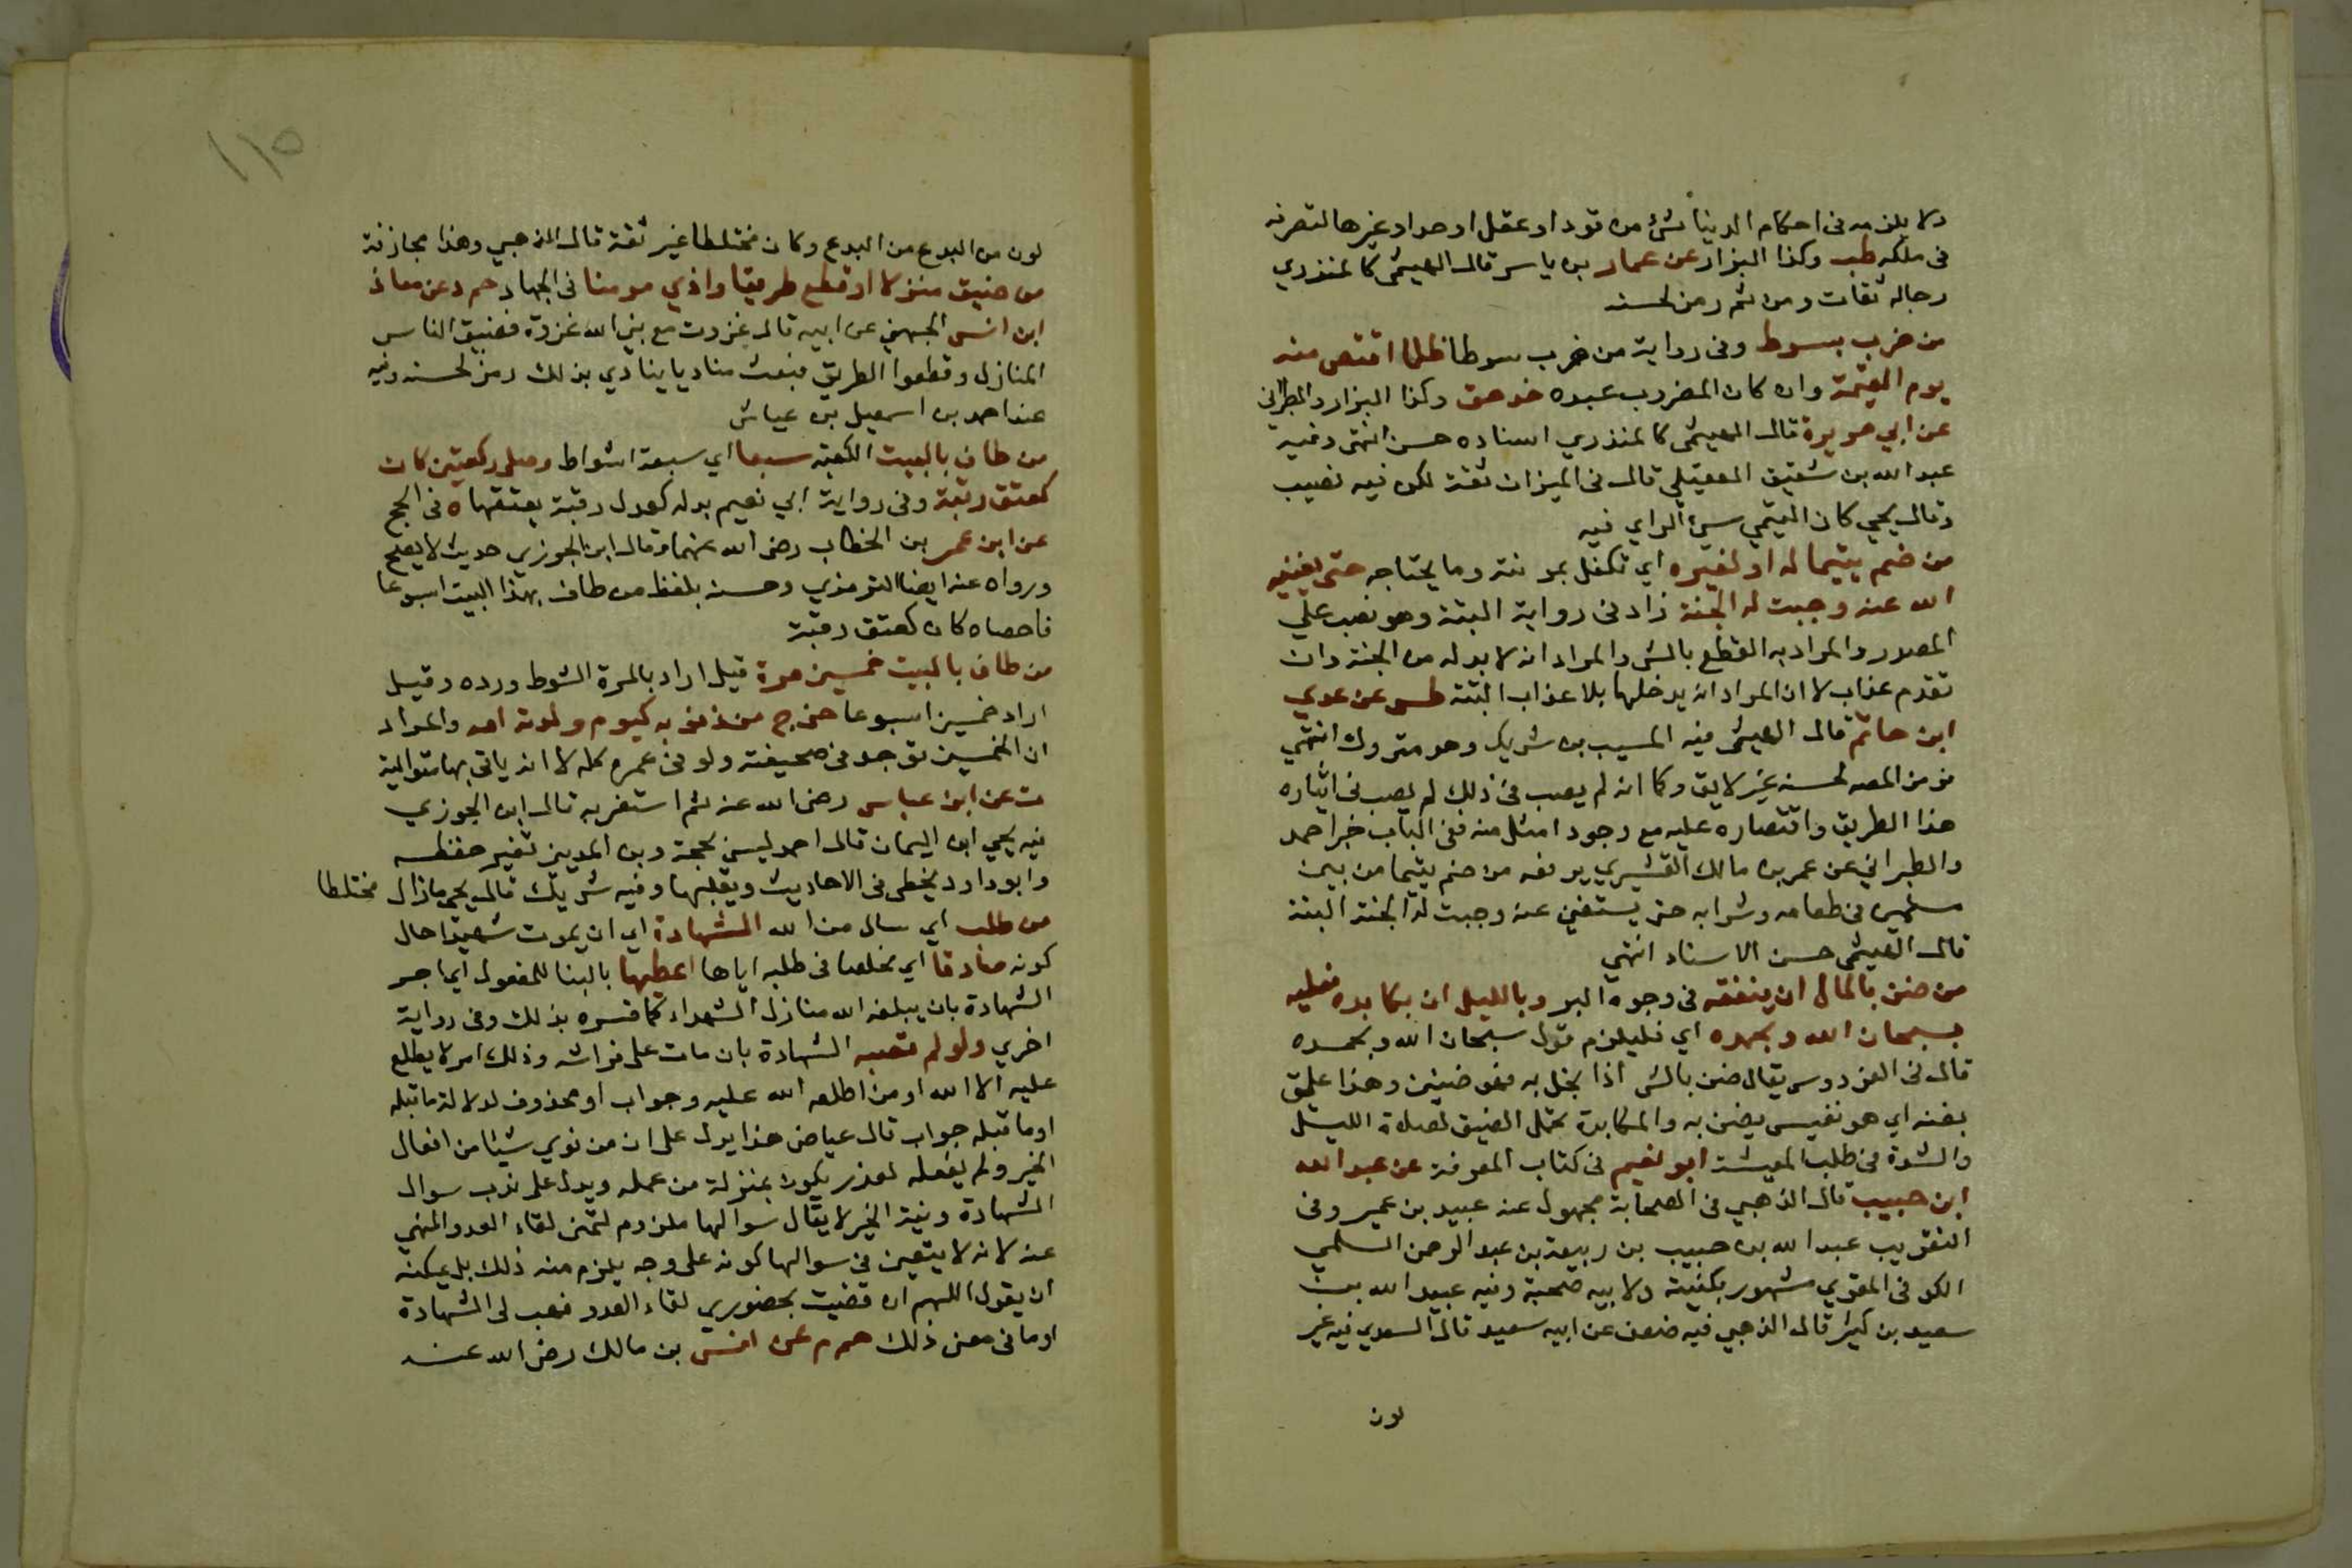 ولا يلزمه في احكام الدنيا شئ من قود او عقل او حد او غيرها لتصرفه
في ملكه طب وكذا البزار عن عمار بن ياسر قال الهيثمي كالمنذري
رجاله ثقات ومن ثم رمز لحسنه
من ضرب بسوط وفي رواية من ضرب سوطا ظلما اقتص منه
يوم القيمة وان كان المضروب عبده خد هق وكذا البزار والطبراني
عن ابي هريرة قال الهيثمي كالمنذري اسناده حسن انتهى وفيه
عبد الله بن شقيق العقيلي قال في الميزان ثقة لكن فيه نصب
وقال يحيي كان التيمي سيئ الراي فيه
من ضم يتيما له او لغيره اي تكفل بمونته وما يحتاجه حتى يغنيه
الله عنه وجبت له الجنة زاد في رواية البتة وهو نصب علي
المصدر والمراد به القطع بالشي والمراد انه لا بد له من الجنة وان
تقدم عذاب لا ان المراد انه يدخلها بلا عذاب البتة طس عن عدي
ابن حاتم قال الهيثمي فيه المسيب بن شريك وهو متروك انتهي
فرمز المصه لحسنه غير لايق وكما انه لم يصب في ذلك لم يصب في ايثاره
هذا الطريق واقتصاره عليه مع وجود امثل منه ففي الباب خبر احمد
والطبراني عن عمر بن مالك القشيري يرفعه من ضم يتيما من بين
مسلمين في طعامه وشرابه حتى يستغني عنه وجبت له الجنة البتة
قال الهيثمي حسن الاسناد انتهي
من ضن بالمال ان ينفقه في وجوه البر وبالليل ان يكابده فعليه
بسبحان الله وبحمده اي فليلزم قول سبحان الله وبحمده
قال في الفردوس يقال ضن بالشي اذا بخل به فهو ضنين وهذا علق
مضنه اي هو نفيس يضن به والمكابدة تحمل الضيق لصلاة الليل
والشدة في طلب المعيشة ابو نعيم في كتاب المعرفة عن عبد الله
ابن حبيب قال الذهبي في الصحابة مجهول عنه عبيد بن عمير وفي
التقريب عبد الله بن حبيب بن ربيعة بن عبد الرحمن السلمي
الكوفي المقري مشهور بكنيته ولابيه صحبة وفيه عبيد الله بن
سعيد بن كثير قال الذهبي فيه ضعف عن ابيه سعيد قال السعدي فيه غير
لون
١١٥
لون من البدع من البدع وكان مختلطا غير ثقة قال الذهبي وهذا مجازفة
من ضيق منزلا او قطع طريقا واذي مومنا في الجهاد حم د عن معاذ
ابن انس الجهني عن ابيه قال غزوت مع نبي الله غزوة فضيق الناس
المنازل وقطعوا الطريق فبعث مناديا ينادي بذلك رمز لحسنه وفيه
عند احمد بن اسمعيل بن عياش
من طاف بالبيت الكعبة سبعا اي سبعة اشواط وصلى ركعتين كان
كعتق رقبة وفي رواية ابي نعيم بدله كعدل رقبة يعتقها ه في الحج
عن ابن عمر بن الخطاب رضى الله عنهما وقال ابن الجوزي حديث لا يصح
ورواه عنه ايضا الترمذي وحسنه بلفظ من طاف بهذا البيت اسبوعا
فاحصاه كان كعتق رقبة
من طاف بالبيت خمسين مرة قيل اراد بالمرة الشوط ورده وقيل
اراد خمسين اسبوعا خرج من ذنوبه كيوم ولدته امه والمراد
ان الخمسين توجد في صحيفته ولو في عمره كله لا انه ياتي بها متوالية
ت عن ابن عباس رضى الله عنه ثم استغربه قال ابن الجوزي
فيه يحيي ابن اليمان قال احمد ليس بحجة وبن المديني تغير حفظه
وابو داود يخطى في الاحاديث ويقلبها وفيه شريك قال يحيى ما زال مختلطا
من طلب اي سال من الله الشهادة اي ان يموت شهيدا حال
كونه صادقا اي مخلصا في طلبه اياها اعطيها بالبنا للمفعول اي اجر
الشهادة بان يبلغه الله منازل الشهداء كما فسره بذلك وفي رواية
اخري ولو لم تصبه الشهادة بان مات على فراشه وذلك امر لا يطلع
عليه الا الله او من اطلعه الله عليه وجواب او محذوف لدلالة ما قبله
او ما قبله جواب قال عياض هذا يدل على ان من نوي شيئا من افعال
الخير ولم يفعله لعذر يكون بمنزلة من عمله ويدل على ندب سوال
الشهادة ونية الخير لا يقال سوالها ملزوم لتمنى لقاء العدو المنهي
عنه لانه لا يتعين في سوالها كونه على وجه يلزم منه ذلك بل يمكنه
ان يقول اللهم ان قضيت بحضوري لقاء العدو فهب لي الشهادة
او ما في معنى ذلك حم م عن انس بن مالك رضى الله عنه